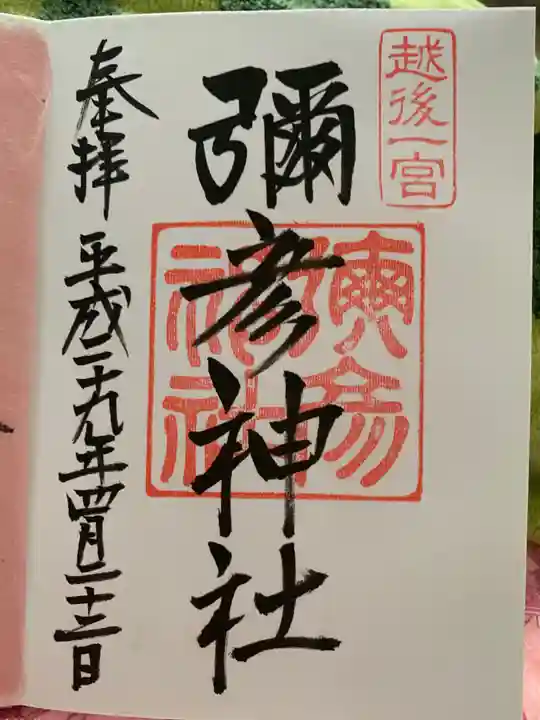 越後一宮
彌彦神社
彌彦神社
奉拝
平成二十九年四月二十三日